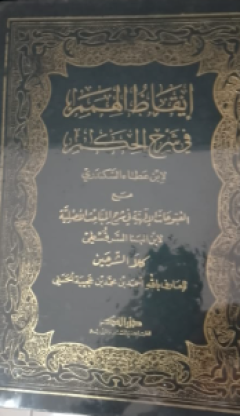 إيقاظ الهمم
في شرح الحكم
لابن عطاء الله السكندري
مع
الفتوحات الإلهية في شرح المباحث الأصلية
لابن البنا السرقسطي
كلا الشرحين
للعارف بالله أحمد بن محمد بن عجيبة الحسني
دار الفكر